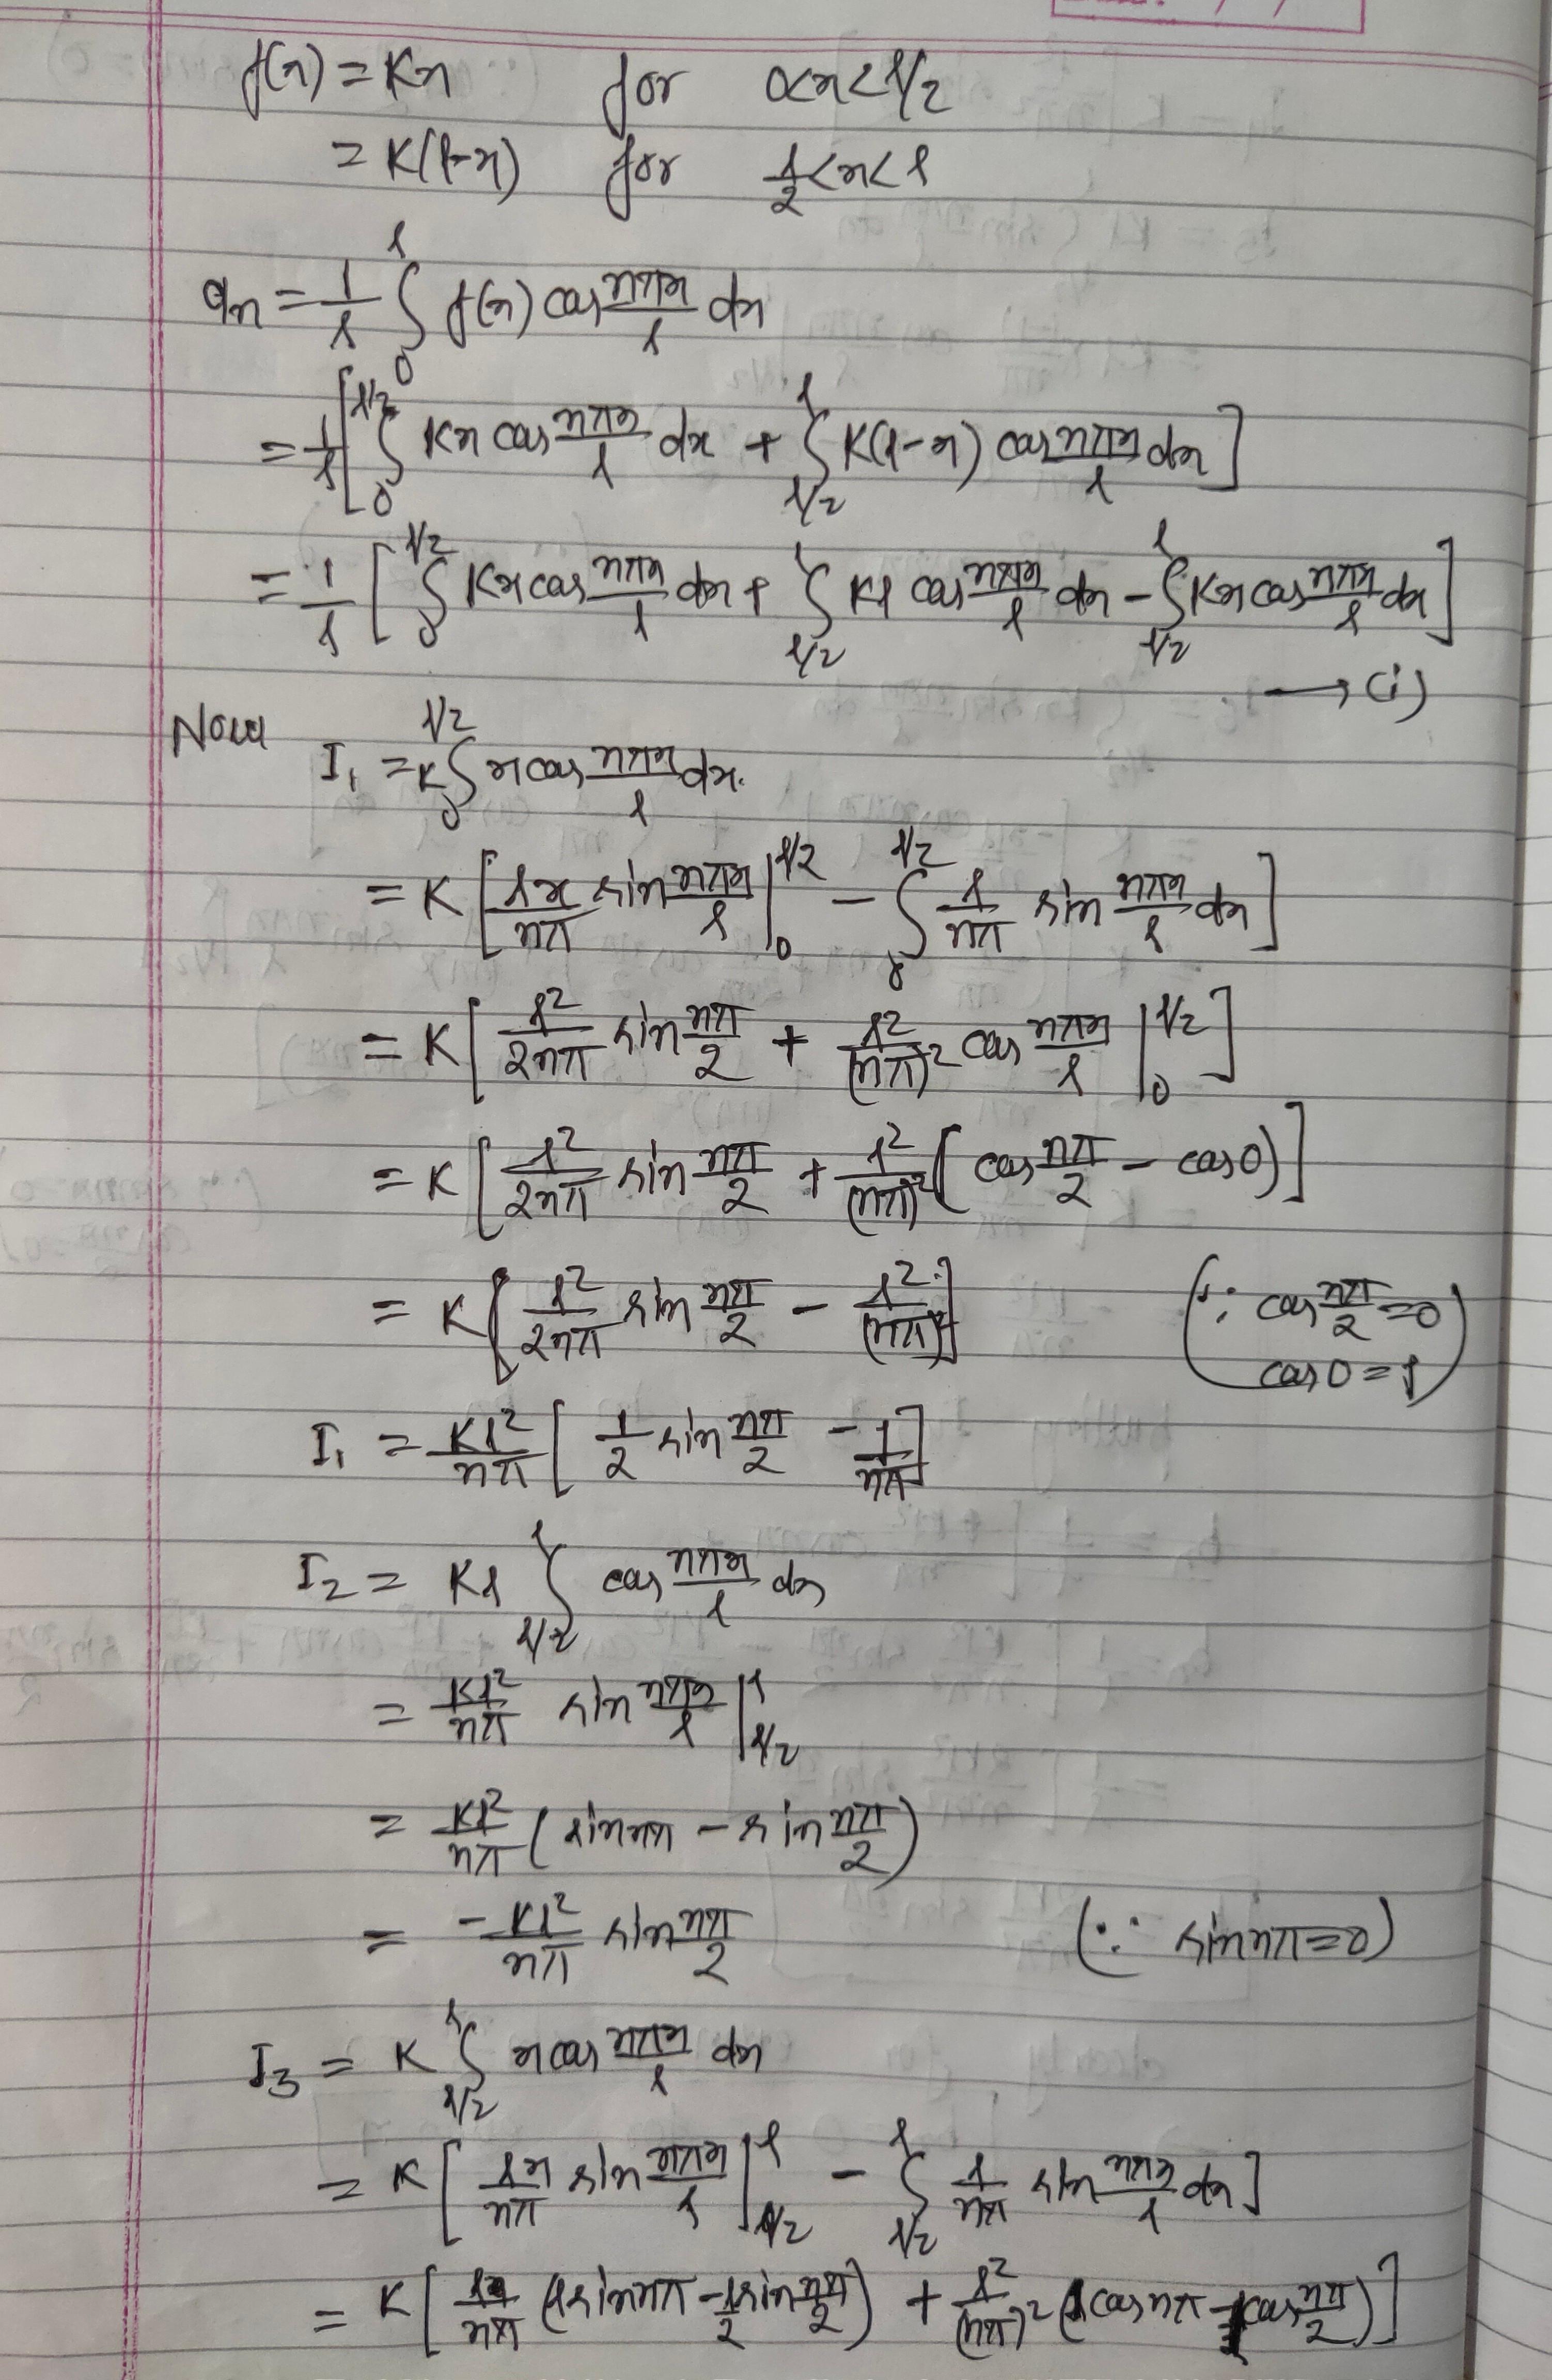 f(x) = Kx for 0<x<l/2
= K(l-x) for l/2<x<l
an = 1/l ∫₀^l f(x) cos nπx/l dx
= 1/l [ ∫₀^{l/2} Kx cos nπx/l dx + ∫_{l/2}^l K(l-x) cos nπx/l dx ]
= 1/l [ ∫₀^{l/2} Kx cos nπx/l dx + ∫_{l/2}^l Kl cos nπx/l dx - ∫_{l/2}^l Kx cos nπx/l dx ]
→ (i)
Now I₁ = K ∫₀^{l/2} x cos nπx/l dx.
= K [ lx/nπ sin nπx/l |₀^{l/2} - ∫₀^{l/2} l/nπ sin nπx/l dx ]
= K [ l²/2nπ sin nπ/2 + l²/(nπ)² cos nπx/l |₀^{l/2} ]
= K [ l²/2nπ sin nπ/2 + l²/(nπ)² ( cos nπ/2 - cos0 ) ]
= K [ l²/2nπ sin nπ/2 - l²/(nπ)² ] (∵ cos nπ/2 = 0
cos0 = 1)
I₁ = Kl²/nπ [ 1/2 sin nπ/2 - 1/nπ ]
I₂ = Kl ∫_{l/2}^l cos nπx/l dx
= Kl²/nπ sin nπx/l |_{l/2}^l
= Kl²/nπ ( sin nπ - sin nπ/2 )
= -Kl²/nπ sin nπ/2 (∵ sin nπ = 0)
I₃ = K ∫_{l/2}^l x cos nπx/l dx
= K [ lx/nπ sin nπx/l |_{l/2}^l - ∫_{l/2}^l l/nπ sin nπx/l dx ]
= K [ l/nπ ( l sin nπ - l/2 sin nπ/2 ) + l²/(nπ)² ( cos nπ - cos nπ/2 ) ]